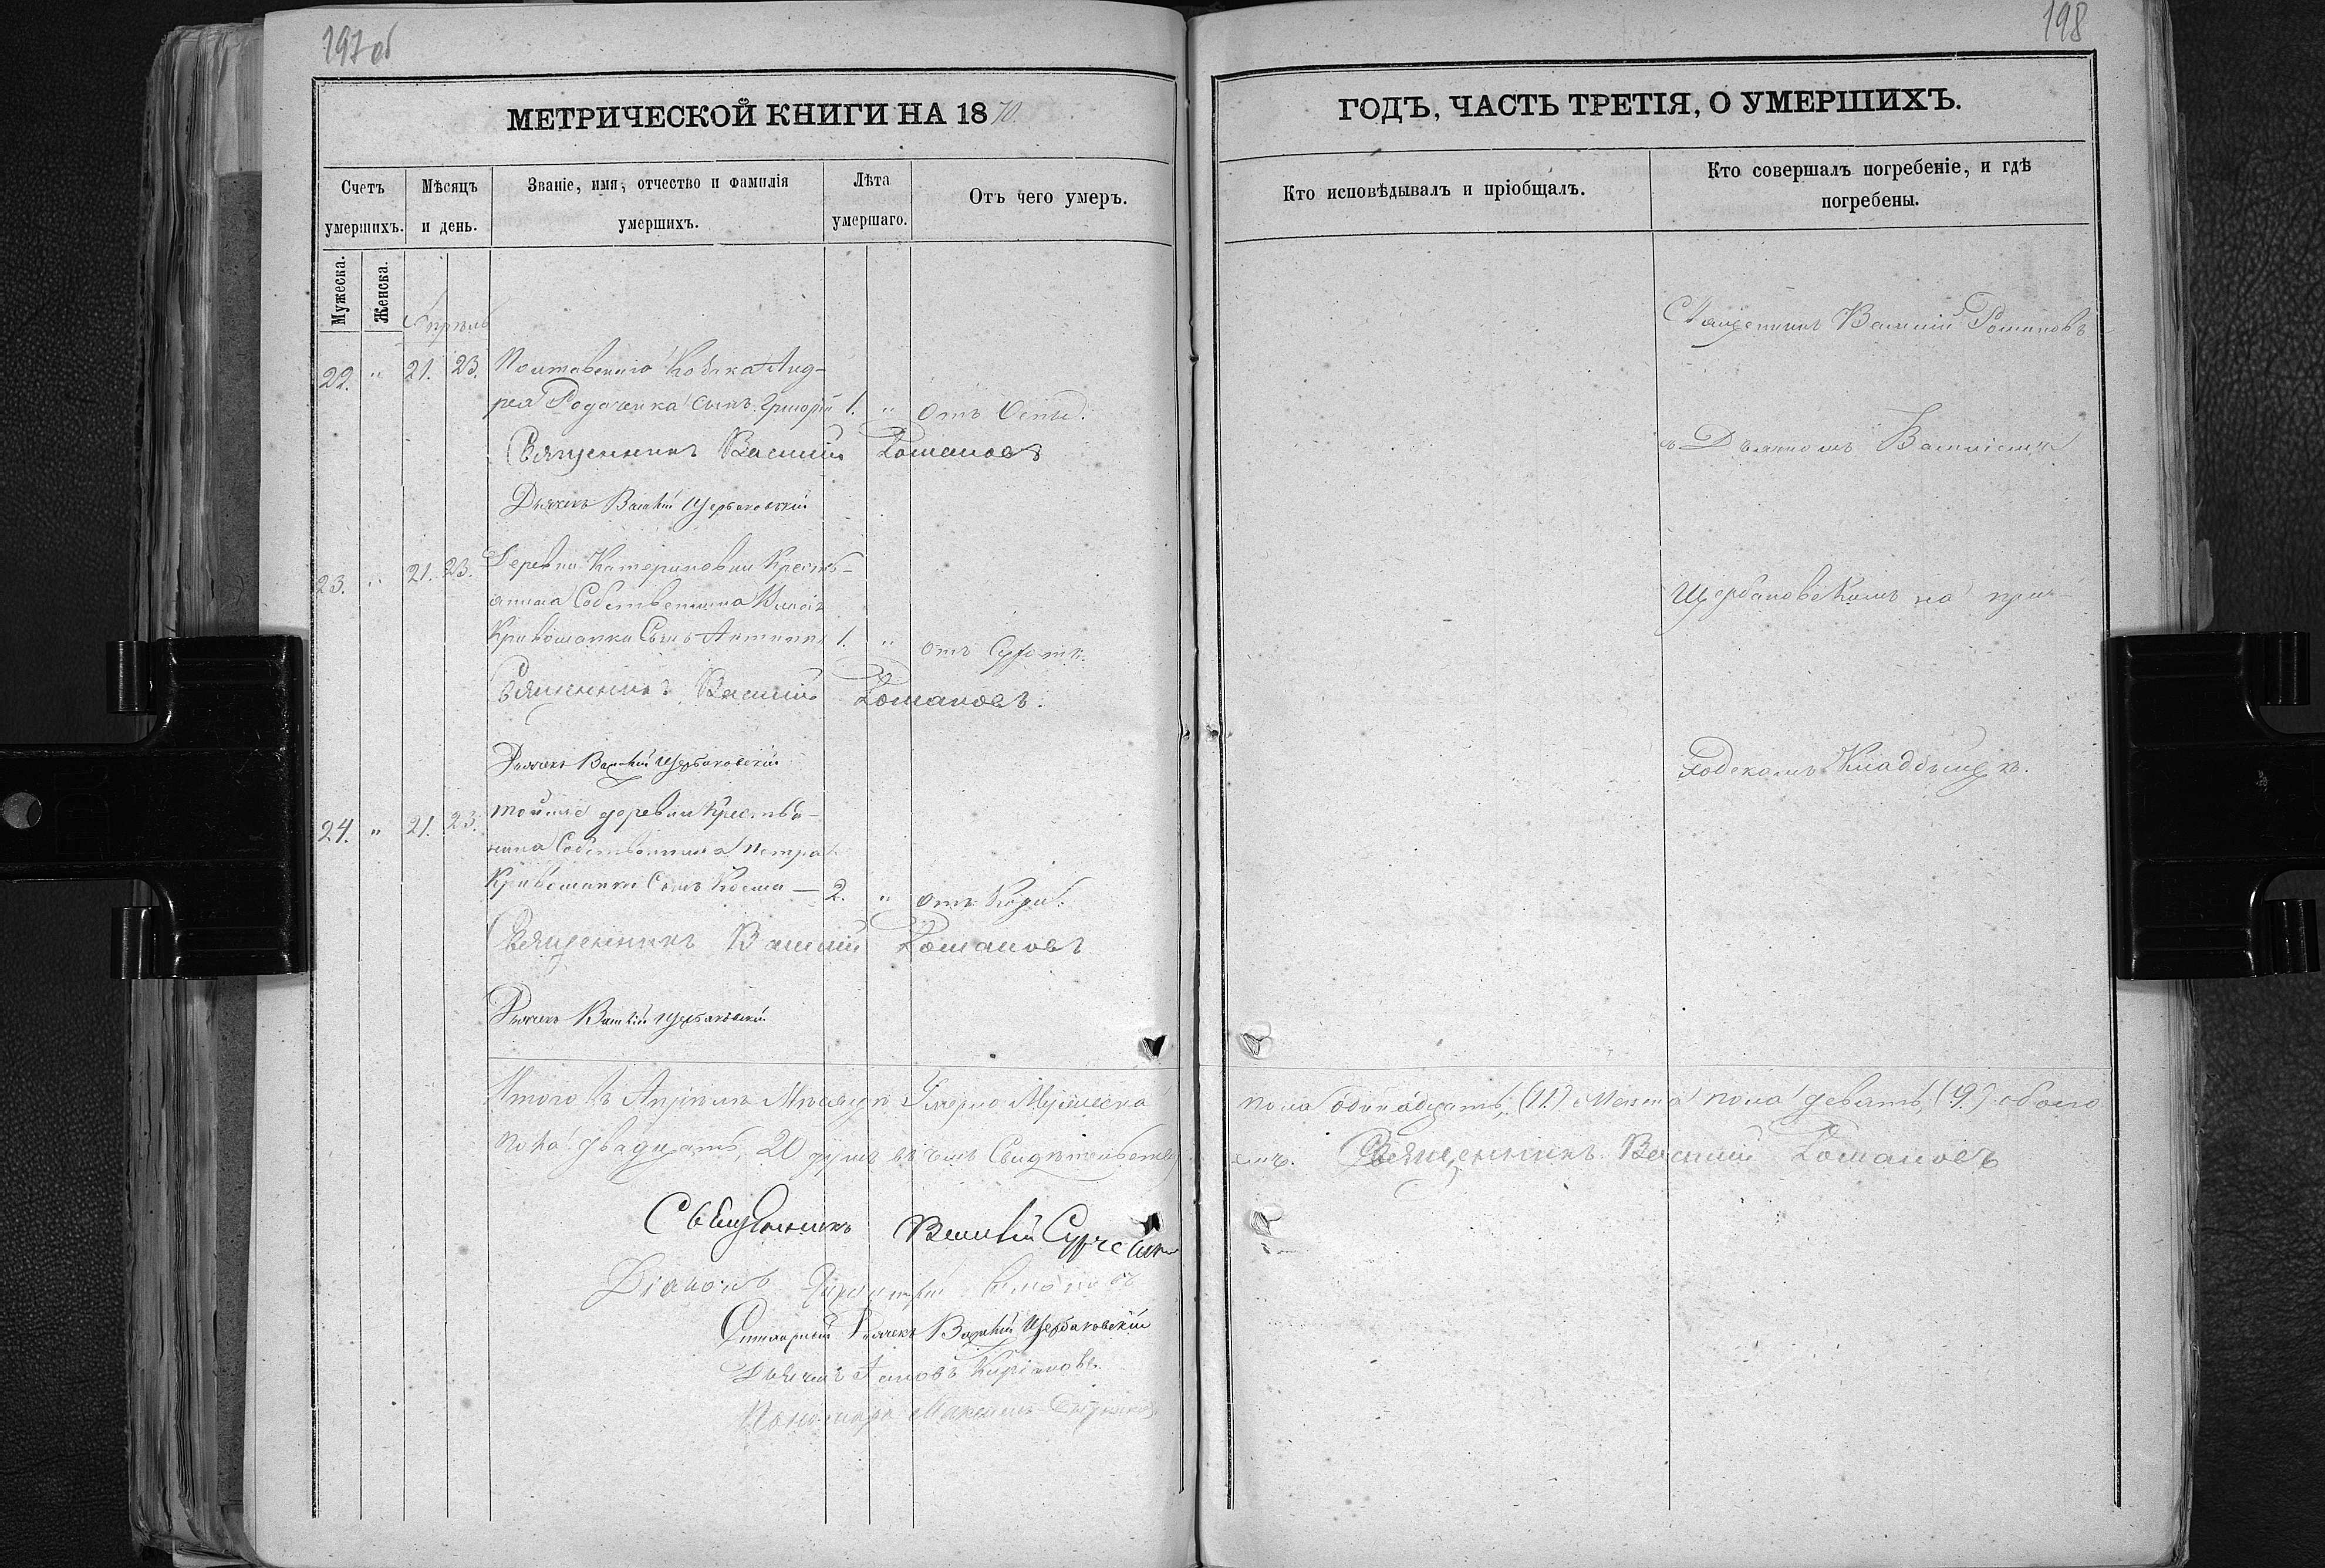 197 об
198
МЕТРИЧЕСКОЙ КНИГИ НА 1870.
ГОДЪ, ЧАСТЬ ТРЕТІЯ, О УМЕРШИХЪ.
Счетъ умершихъ.
Мѣсяцъ и день.
Званіе, имя, отчество и фамилія умершихъ.
Лѣта умершаго.
Отъ чего умеръ.
Кто исповѣдывалъ и пріобщалъ.
Кто совершалъ погребеніе, и гдѣ погребены.
Мужеска.
Женска.
Апрѣль
22. " 21. 23. Козака Анд-
рея сынъ Григорій 1. " отъ Оспы.
Священникъ Василій Романовъ
Дьячекъ Василій Щербаковскій
23. " 21. 23. Деревни Катериновки Кресть-
янина Собственника
Кривошапки Сынъ Антонъ 1. " отъ
Священникъ Василій Романовъ.
Дьячекъ Василій Щербаковскій
24. " 21. 23. тойже деревни Крестья-
нина Собственника Петра
Кривошапки Сынъ Косма — 2. " отъ Кори.
Священникъ Василій Романовъ
Дьячекъ Василій Щербаковскій
Священникъ Василій Романовъ
съ Дьячкомъ Василіемъ
Щербаковскимъ на при-
ходскомъ Кладбищѣ.
Итого въ Апрѣлѣ Мѣсяцѣ Умерло Мужеска
пола одинадцать, (11.) Женска пола девять, (9.) обоего
пола двадцать, 20 душъ въ чемъ Свидѣтельству
емъ. Священникъ Василій Романовъ
Священникъ Василій
Діаконъ
Дьячекъ Василій Щербаковскій
Дьячекъ Іаковъ
Пономарь Максимъ